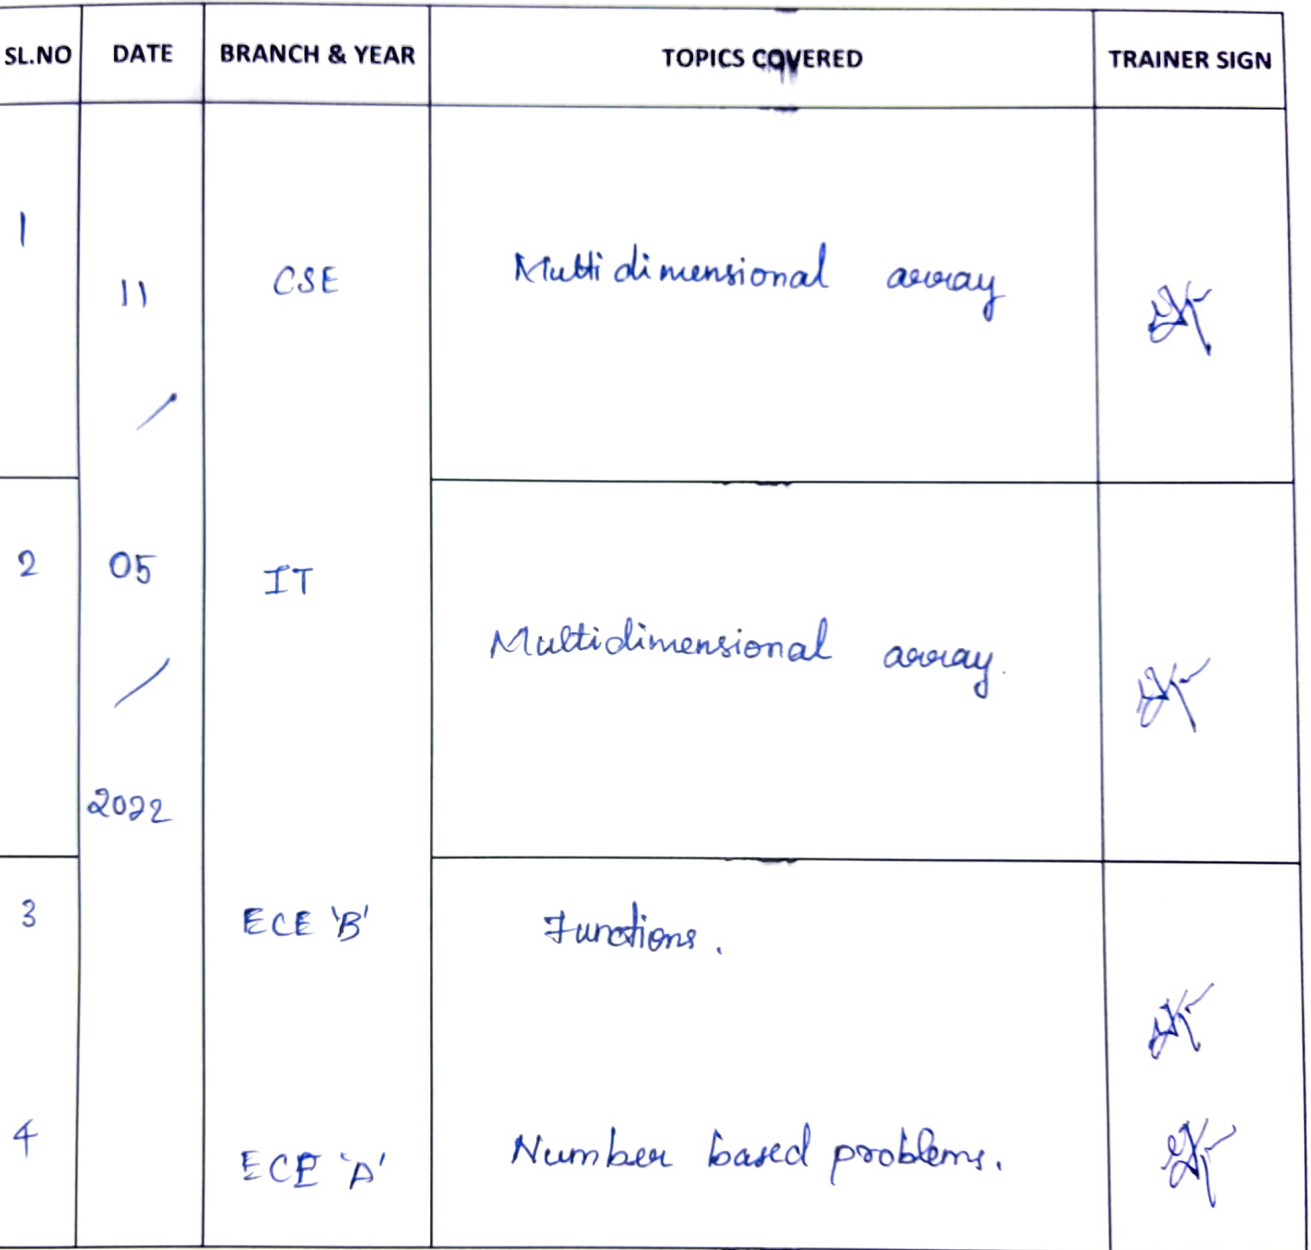 SL.NO DATE BRANCH & YEAR TOPICS COVERED TRAINER SIGN
1 11 CSE Multidimensional array
/
2 05 IT Multidimensional array.
/
2022
3 ECE 'B' Functions.
4 ECE 'A' Number based problems.